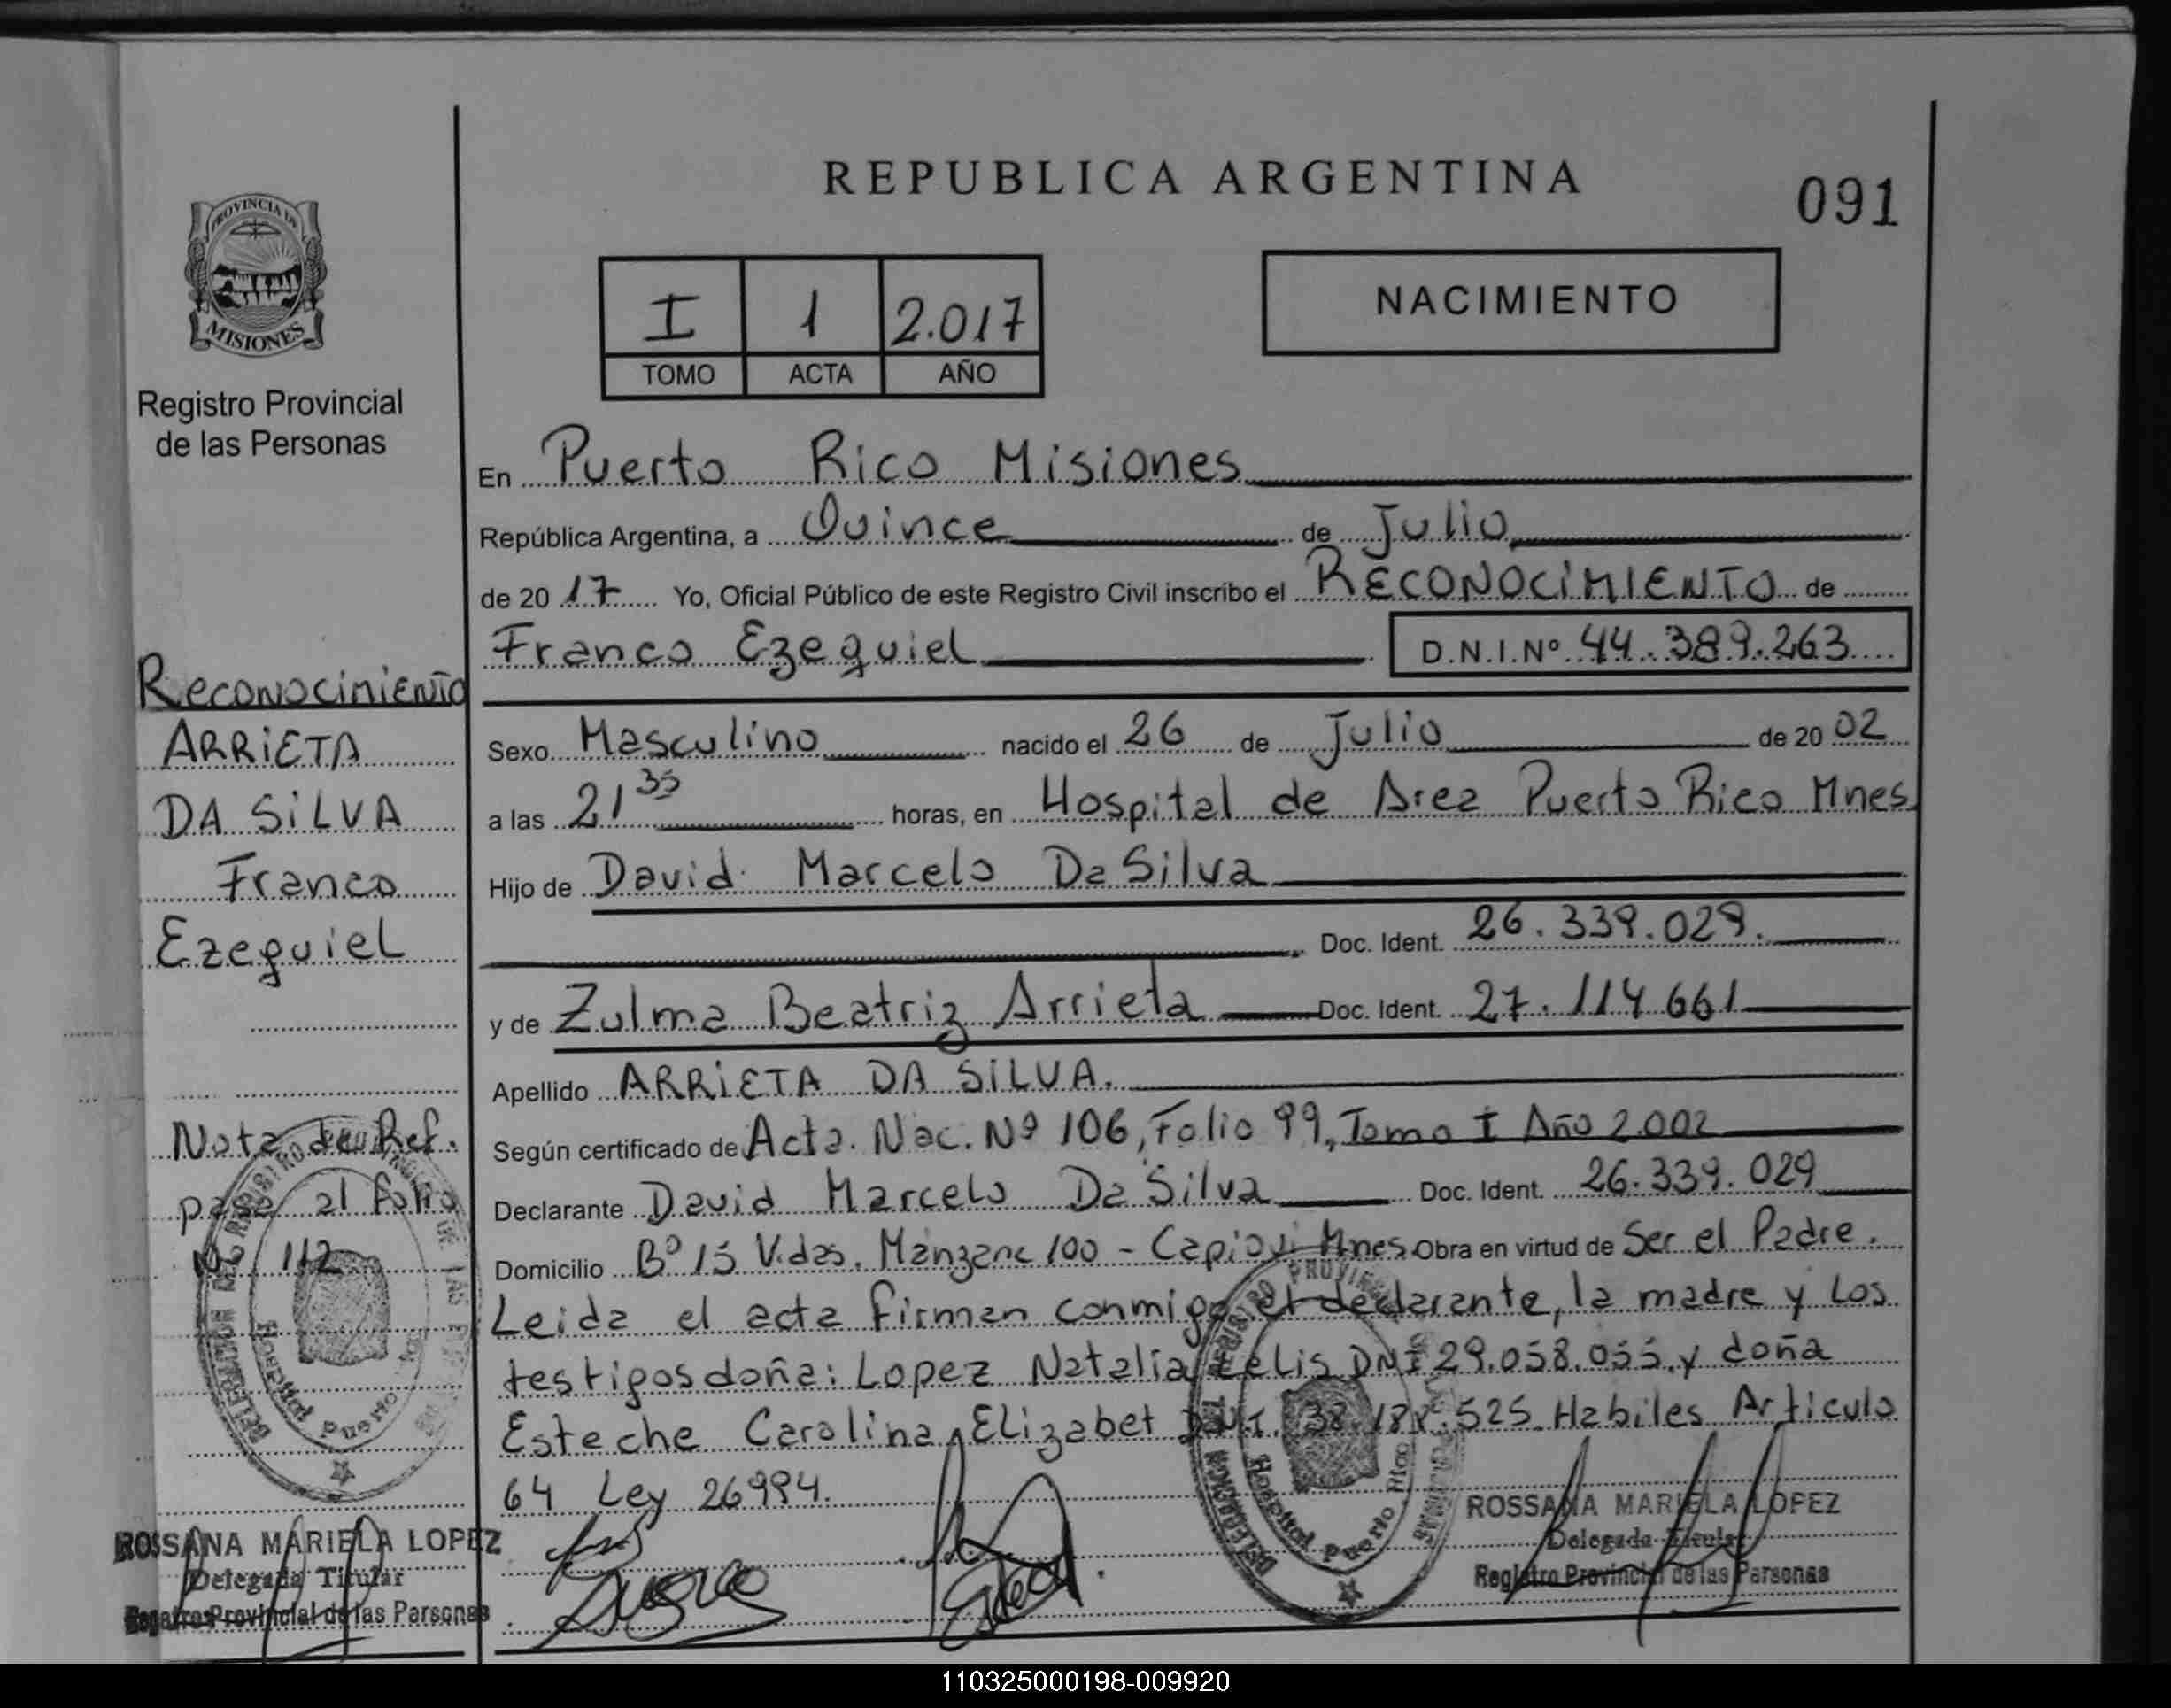 REPUBLICA ARGENTINA
091
PROVINCIA DE
MISIONES
Registro Provincial
de las Personas
I 1 2.017
TOMO ACTA AÑO
NACIMIENTO
En Puerto Rico Misiones
República Argentina, a Quince de Julio
de 2017 Yo, Oficial Público de este Registro Civil inscribo el RECONOCIMIENTO de
Franco Ezequiel D.N.I.Nº 44.389.263
Sexo Masculino nacido el 26 de Julio de 2002
a las 21 35 horas, en Hospital de Area Puerto Rico Mnes
Hijo de David Marcelo Da Silva
Doc. Ident. 26.339.029.
y de Zulma Beatriz Arrieta Doc. Ident. 27.114.661
Apellido ARRIETA DA SILVA.
Según certificado de Acta. Nac. Nº 106, Folio 99, Tomo I Año 2.002
Declarante David Marcelo Da Silva Doc. Ident. 26.339.029
Domicilio Bº 15 Vdas. Manzana 100 - Capiovi Mnes. Obra en virtud de Ser el Padre.
Leida el acta firman conmigo el declarante, la madre y los
testigos doña: Lopez Natalia Celis DNI 29.058.055. y doña
Esteche Carolina Elizabet DNI. 525. Habiles Articulo
64 Ley 26994.
Reconocimiento
ARRIETA
DA SILVA
Franco
Ezequiel
Nota de Ref.
pasa al folio
Nº 112
Hospital Puerto Rico
DELEGACION
Hospital Puerto Rico
ROSSANA MARIELA LOPEZ
Delegada Titular
Registro Provincial de las Personas
ROSSANA MARIELA LOPEZ
Delegada Titular
Registro Provincial de las Personas
110325000198-009920